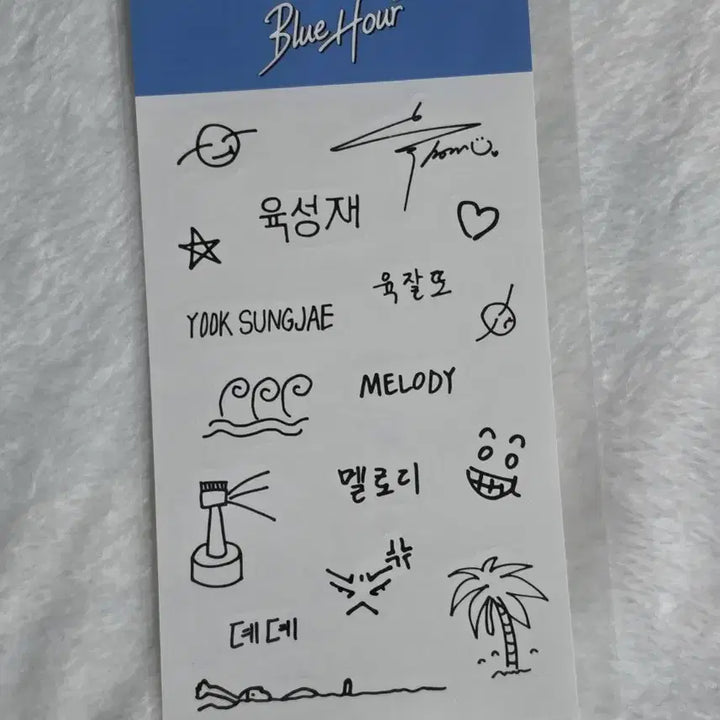 Blue Hour
육성재
육잘또
YOOK SUNGJAE
MELODY
멜로디
뀨
뎨뎨